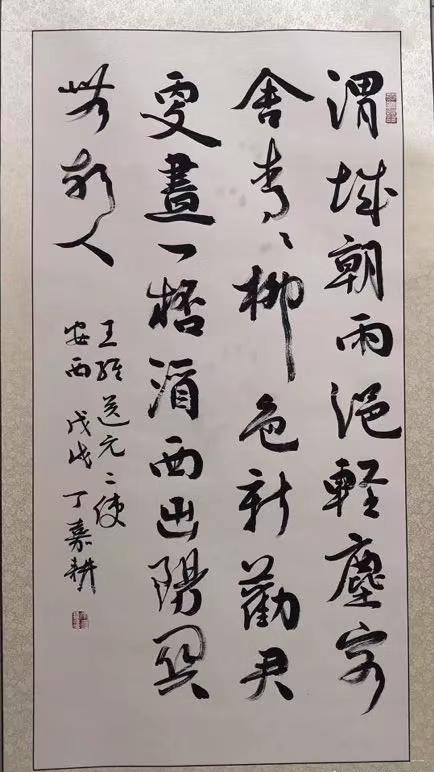 渭城朝雨浥輕塵客
舍青々柳色新勸君
更盡一桮酒西出陽關
無故人
王維送元二使
安西 戊戌 丁嘉耕